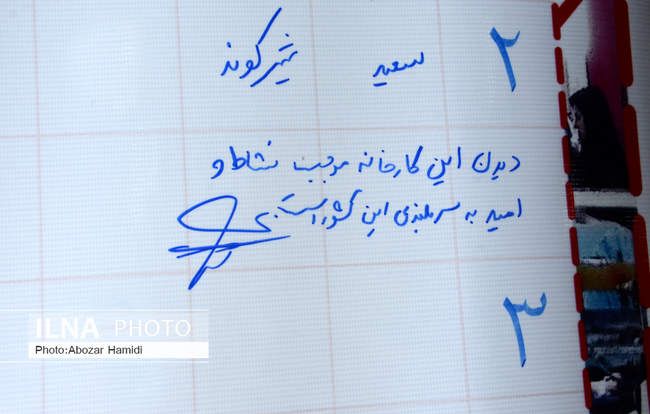 ۲ سعید شیرکوند
دیدن این کارخانه موجب نشاط و
امید به سربلندی این کشور است.
۳
ILNA PHOTO
Photo:Abozar Hamidi